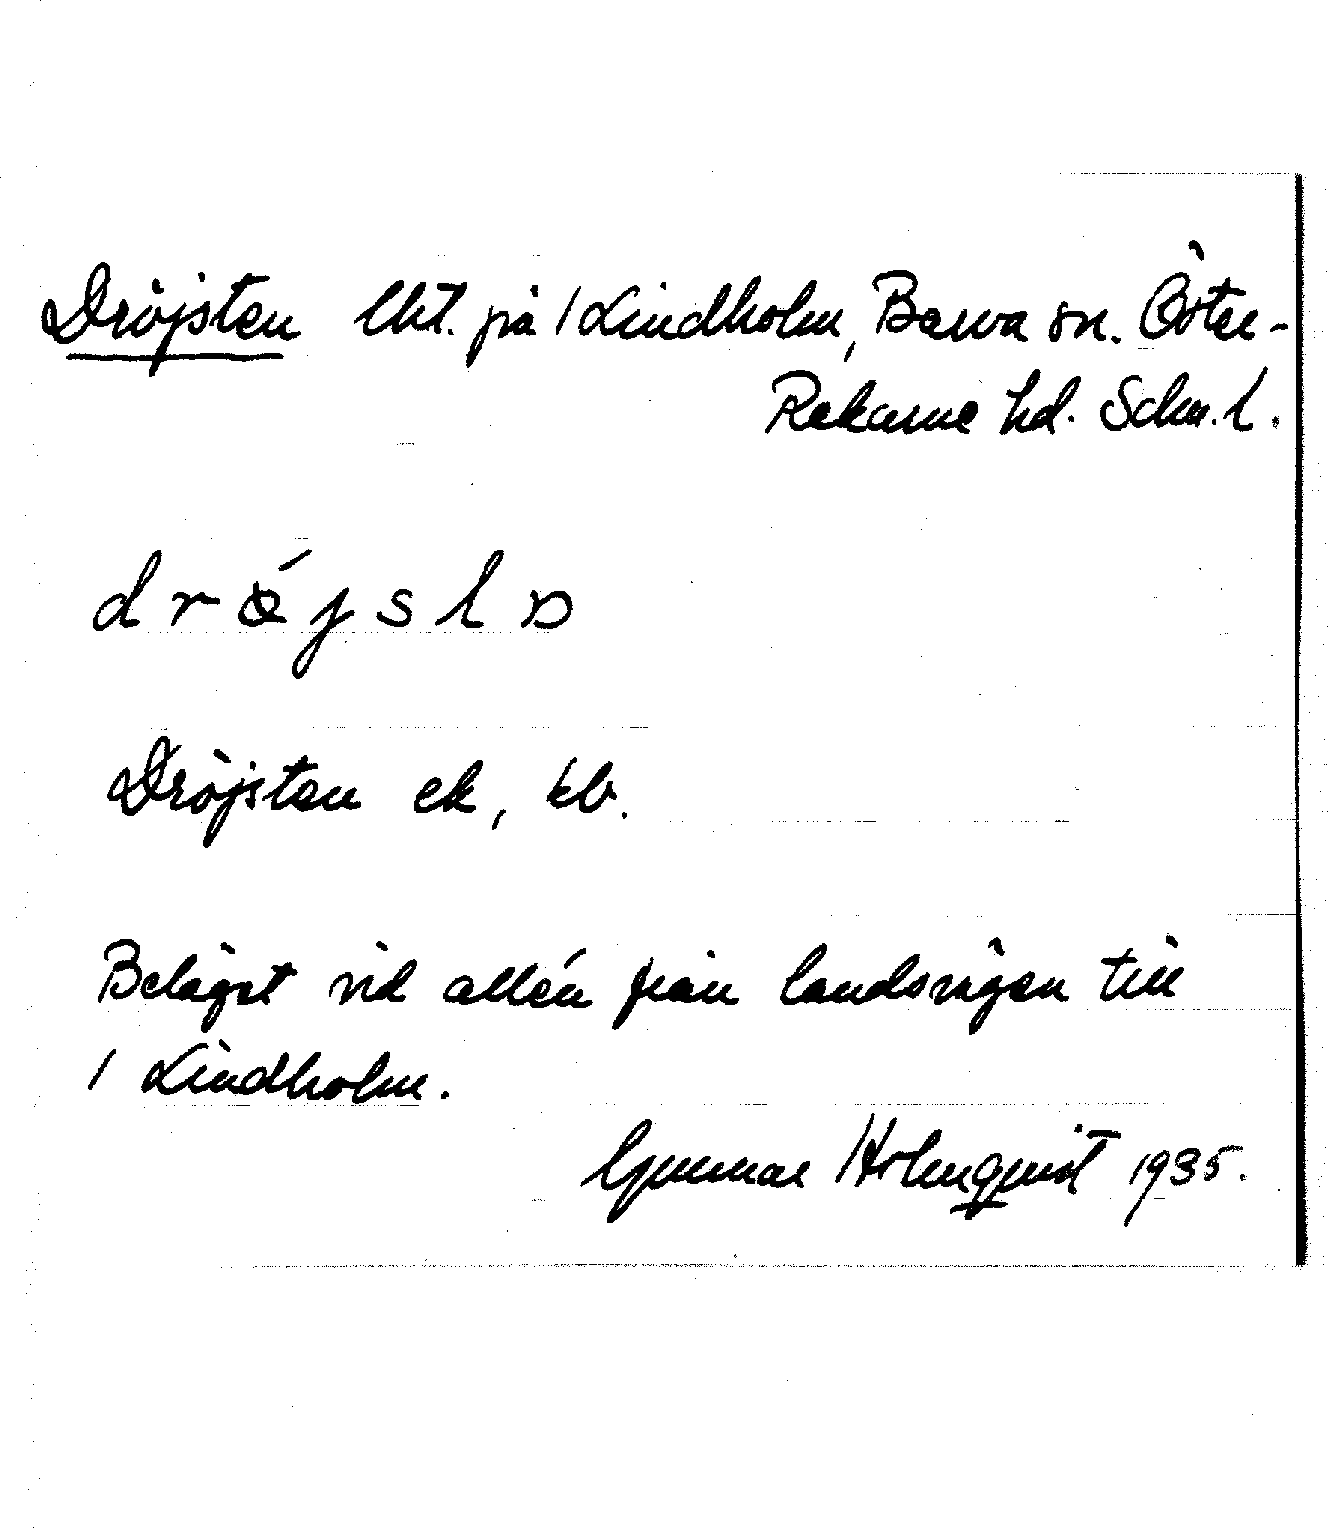 Dröjsten lht. på / Lindholm, Barva sn. Öster-
Rekarne hd. Sdm. l.
Dröjsten ek, kb.
Beläget vid allén från landsvägen till
/ Lindholm.
Gunnar Holmqvist 1935.